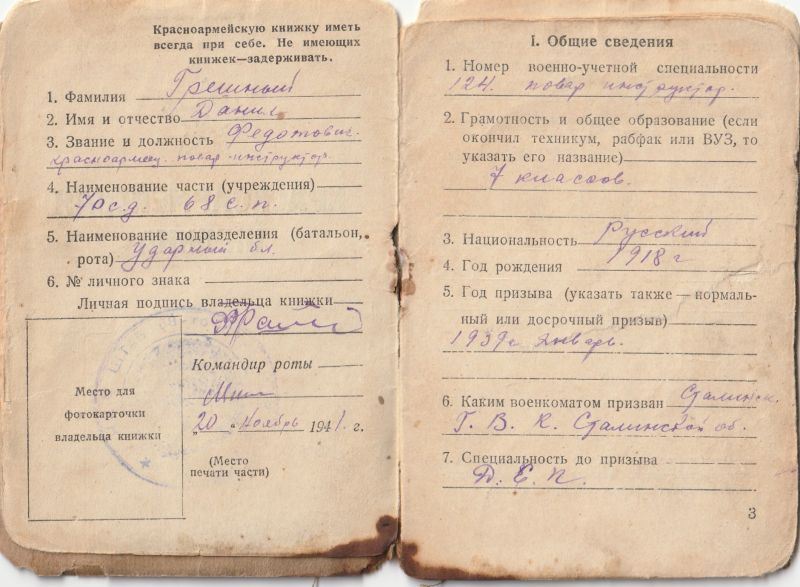 Красноармейскую книжку иметь
всегда при себе. Не имеющих
книжек—задерживать.
1. Фамилия Грешный
2. Имя и отчество Данил
3. Звание и должность Федотович
красноармеец повар инструктор.
4. Наименование части (учреждения)
70 с.д. 68 с.п.
5. Наименование подразделения (батальон,
рота) Ударный бл.
6. № личного знака
Личная подпись владельца книжки
Место для
фотокарточки
владельца книжки
Командир роты
„20" ноябрь 1941 г.
(Место
печати части)
I. Общие сведения
1. Номер военно-учетной специальности
124. повар инструктор.
2. Грамотность и общее образование (если
окончил техникум, рабфак или ВУЗ, то
указать его название)
7 классов.
3. Национальность Русский
4. Год рождения 1918 г
5. Год призыва (указать также — нормаль-
ный или досрочный призыв)
1939 г январь.
6. Каким военкоматом призван Сталинск.
Г. В. К. Сталинской об.
7. Специальность до призыва
Д. Е. п.
3